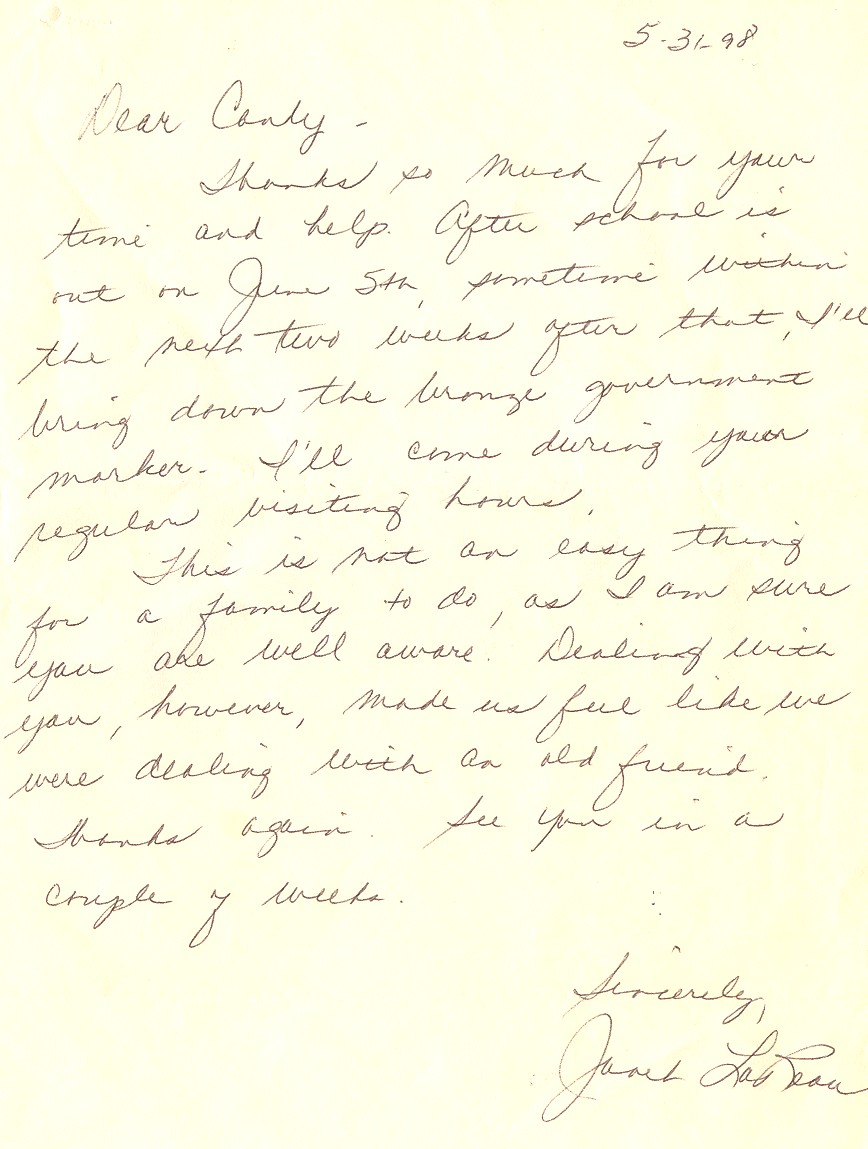 5-31-98
Dear Candy -
Thanks so much for your
time and help. After school is
out on June 5th, sometime within
the next two weeks after that, I'll
bring down the bronze government
marker. I'll come during your
regular visiting hours.
This is not an easy thing
for a family to do, as I am sure
you are well aware. Dealing with
you, however, made us feel like we
were dealing with an old friend.
Thanks again. See you in a
couple of weeks.
Sincerely,
Janet LaBeau